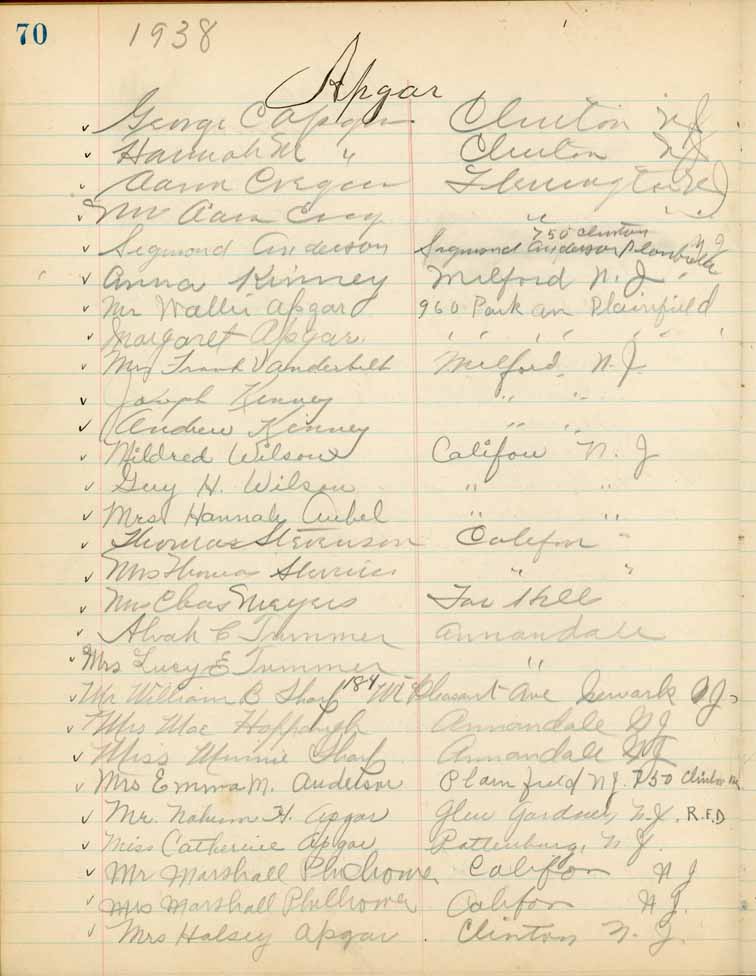 70 1938
Apgar
✓ George C Apgar Clinton NJ
✓ Hannah M " Clinton NJ
✓ Aaron Cregar Flemington
✓ Mr " "
✓ Sigmond Anderson Sigmond Anderson 750 Clinton Plainfield NJ
✓ Anna Kinney Milford N. J.
✓ Mr Wallis Apgar 960 Park av Plainfield
✓ Margaret Apgar " " " " "
✓ Mrs Frank Vanderbilt Milford, N. J.
✓ Joseph Kinney " "
✓ Andrew Kinney " "
✓ Mildred Wilson Califon N. J
✓ Guy H. Wilson " "
✓ Mrs Hannah Aubel " "
✓ Thomas Stevenson Califon "
✓ Mrs Thomas " "
✓ Mrs Chas Meyers Far Hill
✓ Alvah C Trimmer Annandale
✓ Mrs Lucy E Trimmer "
✓ Mr William B Sharp 184 Mt Pleasant Ave Newark NJ.
✓ Mrs Mae Hoppaugh Annandale NJ
✓ Miss Minnie Sharp Annandale NJ
✓ Mrs Emma M. Anderson Plainfield NJ. 750 Clinton Av
✓ Mr. Nahum H. Apgar Glen Gardner N.J. R.F.D
✓ Miss Catherine Apgar Pattenburg, N. J.
✓ Mr Marshall Philhower Califon N J
✓ Mrs Marshall Philhower Califon N J.
✓ Mrs Halsey Apgar Clinton N. J.